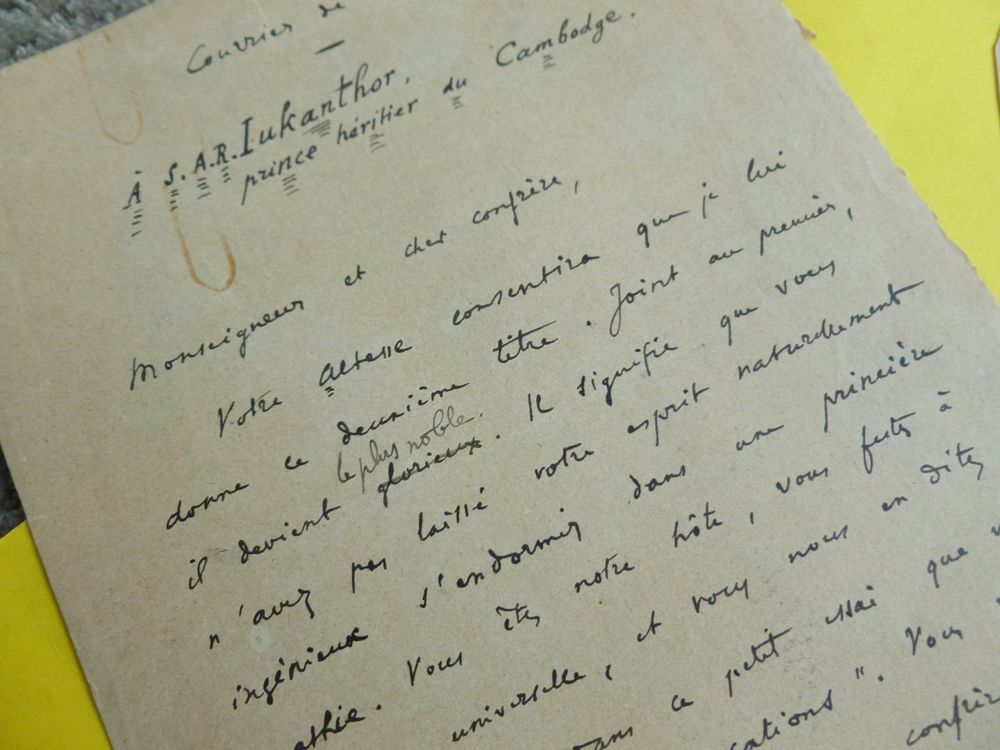 Courrier de
À S.A.R. Iukanthor,
prince héritier du Cambodge.
Monseigneur et cher confrère,
Votre Altesse consentira que je lui
donne ce deuxième titre. Joint au premier,
le plus noble.
il devient glorieux. Il signifie que vous
n'avez pas laissé votre esprit naturellement
ingénieux s'endormir dans une princière
athie. Vous êtes notre hôte, vous fûtes à
universelle, et vous nous en dites
dans ce petit essai que
cations". Vous
confrère